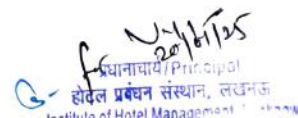 20/11/25
प्रधानाचार्य/Principal
होटल प्रबंधन संस्थान, लखनऊ
Institute of Hotel Management